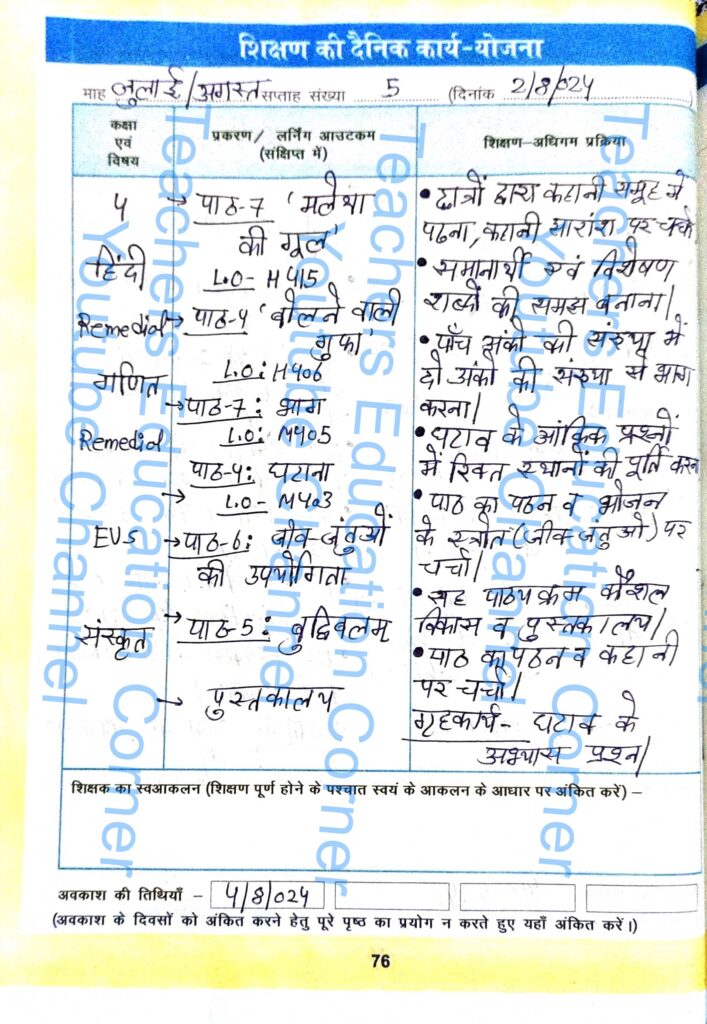 शिक्षण की दैनिक कार्य-योजना
माह जुलाई/अगस्त सप्ताह संख्या 5 (दिनांक 2/8/024
कक्षा एवं विषय
प्रकरण/ लर्निंग आउटकम (संक्षिप्त में)
शिक्षण-अधिगम प्रक्रिया
5
हिंदी
Remedial
गणित
Remedial
EVS
संस्कृत
→ पाठ-7 'मलेथा
की गूल'
L.O- H415
→ पाठ-4 'बोलने वाली
गुफा'
L.O: H406
→ पाठ-7: भाग
L.O: M405
पाठ-4: घटाना
→ L.O- M403
→ पाठ-6: जीव-जंतुओं
की उपयोगिता
→ पाठ-5: बुद्धिबलम्
→ पुस्तकालय
• छात्रों द्वारा कहानी समूह में
पढना, कहानी सारांश पर चर्चा
• समानार्थी एवं विशेषण
शब्दों की समझ बनाना।
• पाँच अंकों की संख्या में
दो अंकों की संख्या से भाग
करना।
• घटाव के आंकिक प्रश्नों
में रिक्त स्थानों की पूर्ति करना
• पाठ का पठन व भोजन
के स्त्रोत (जीव-जंतुओं) पर
चर्चा।
• सह पाठ्यक्रम कौशल
विकास व पुस्तकालय।
• पाठ का पठन व कहानी
पर चर्चा।
गृहकार्य- घटाव के
अभ्यास प्रश्न।
शिक्षक का स्वआकलन (शिक्षण पूर्ण होने के पश्चात स्वयं के आकलन के आधार पर अंकित करें) –
अवकाश की तिथियाँ – 4/8/024
(अवकाश के दिवसों को अंकित करने हेतु पूरे पृष्ठ का प्रयोग न करते हुए यहाँ अंकित करें।)
76
Teachers Education Corner
Youtube Channel
Teachers Education Corner
Youtube Channel
Teachers Education Corner
Youtube Channel